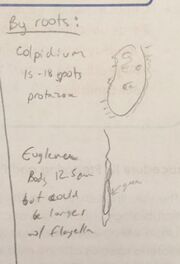 By roots:
Colpidium
15-18 spots
protozoa
Euglena
Body 12.5µm
green
but could
be larger
w/ flagella